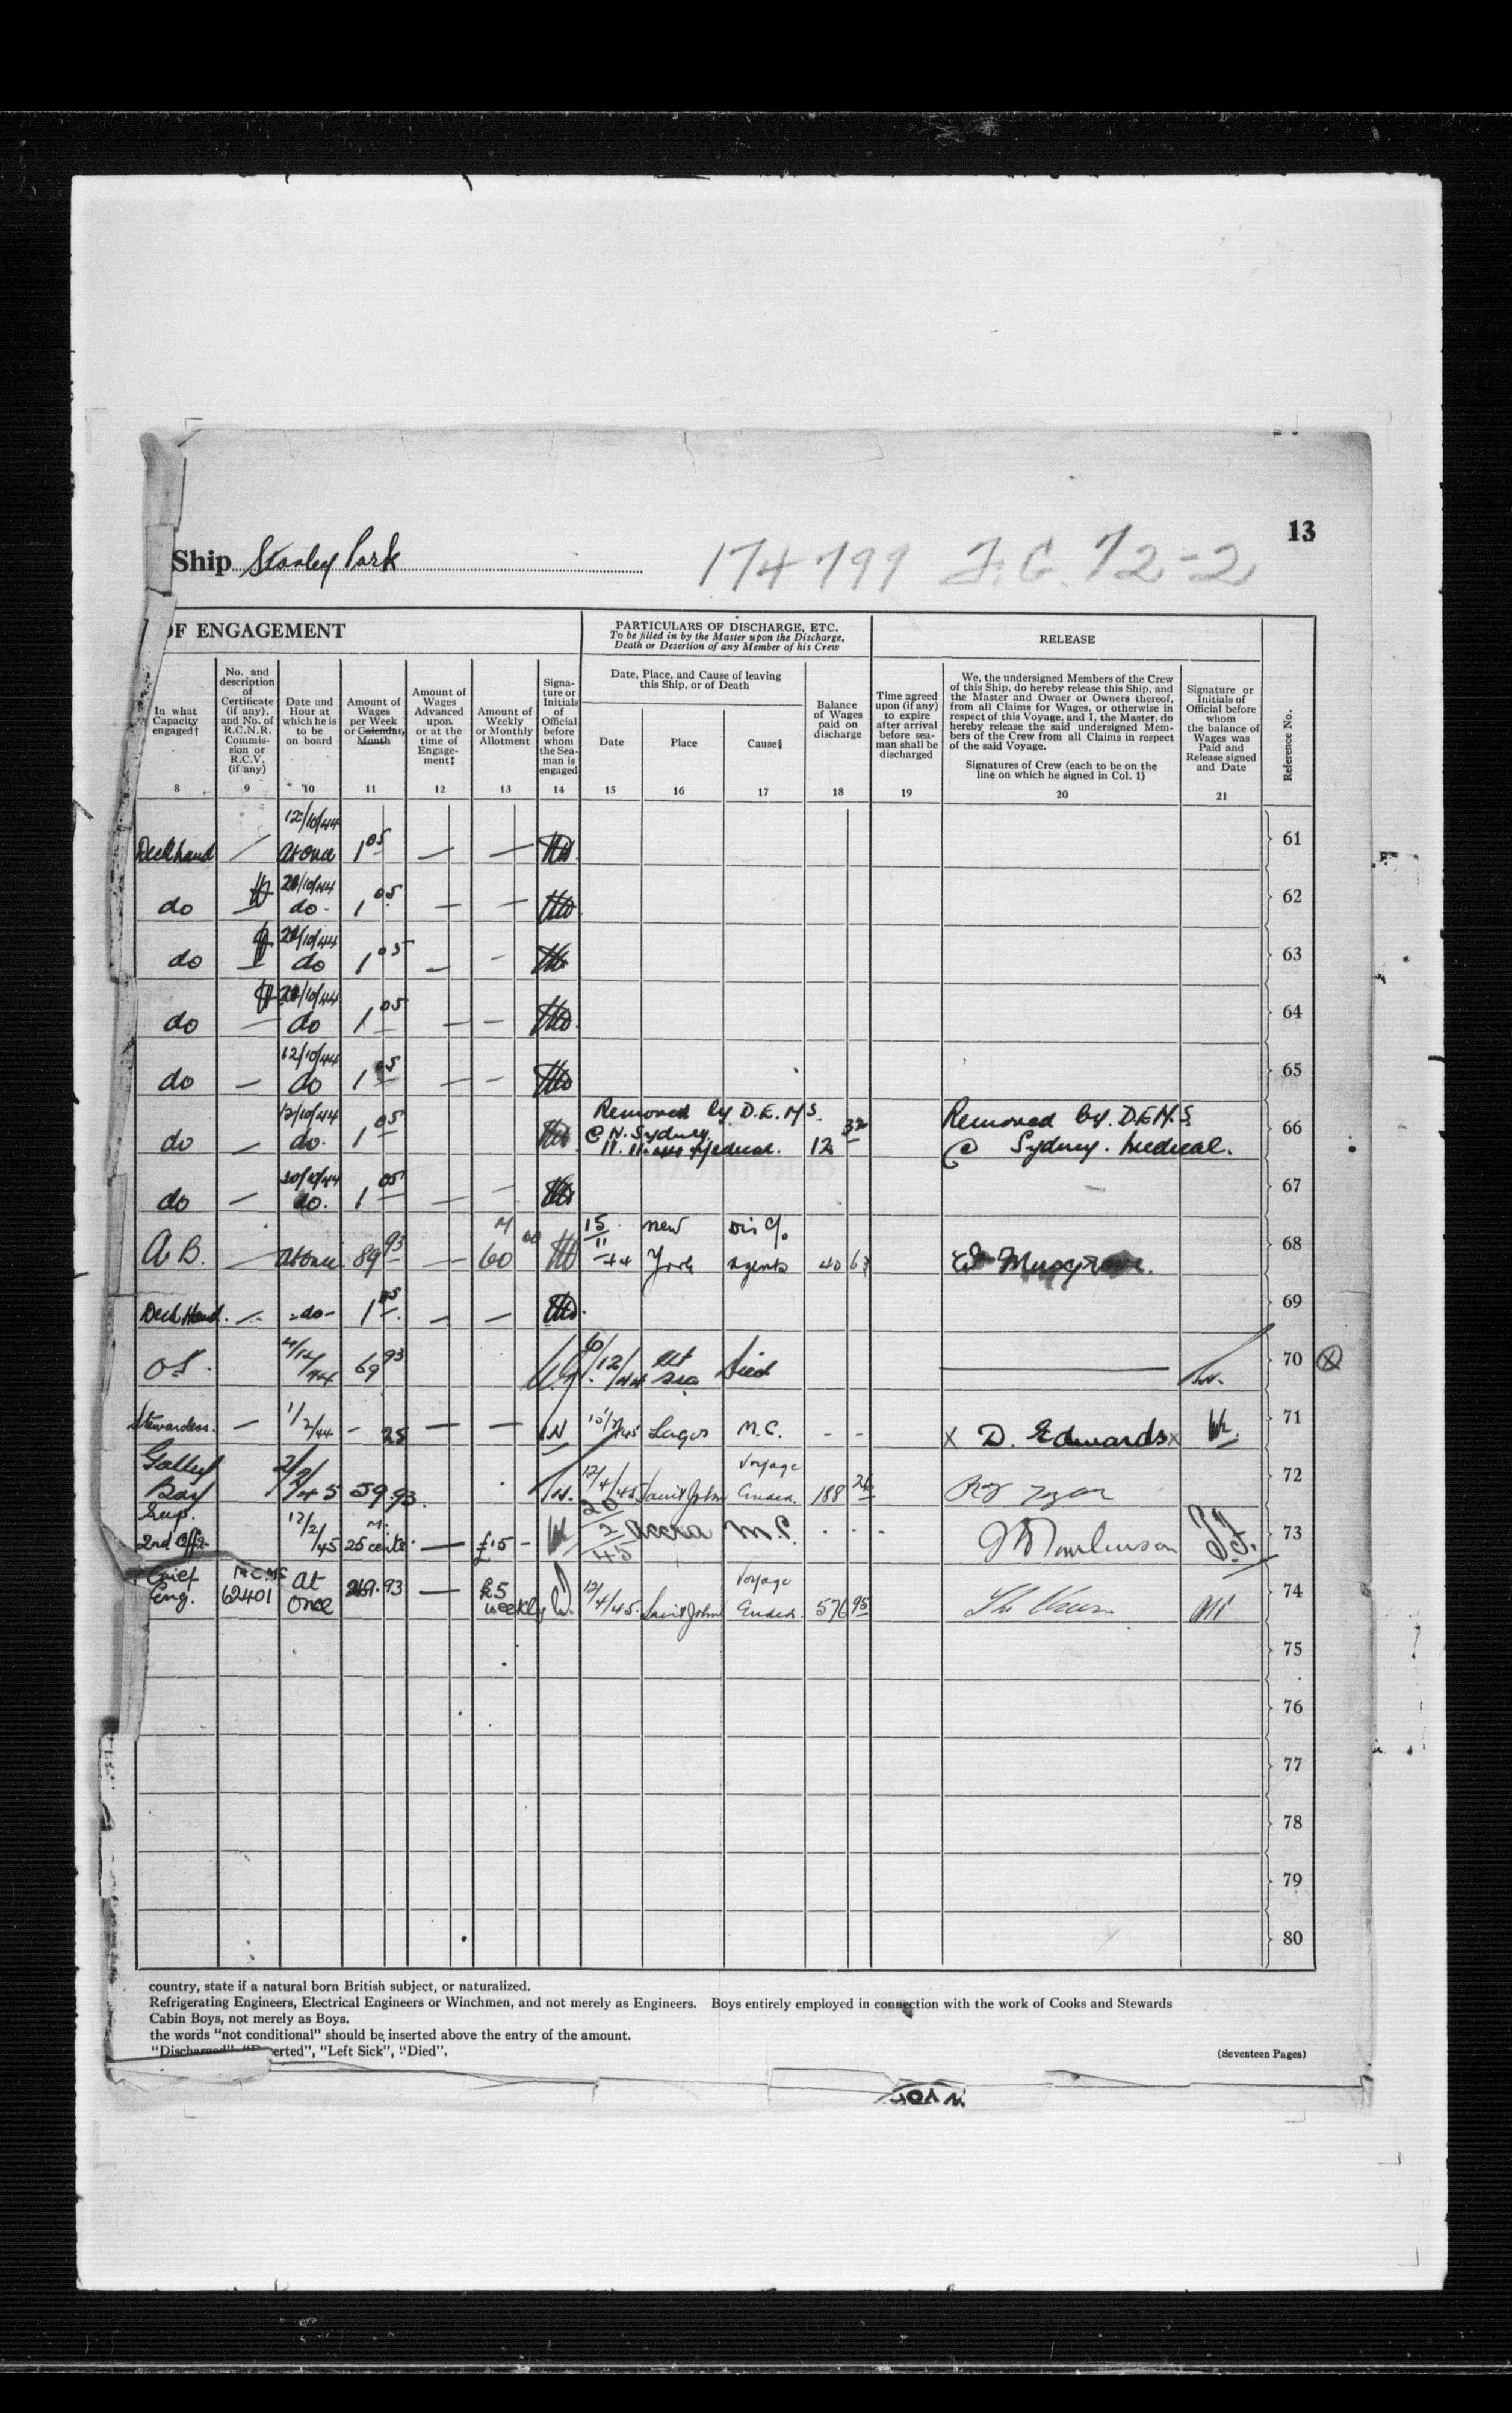 13
Ship Stanley Park
174799 F.G. 72-2
OF ENGAGEMENT
PARTICULARS OF DISCHARGE, ETC.
To be filled in by the Master upon the Discharge,
Death or Desertion of any Member of his Crew
RELEASE
In what
Capacity
engaged†
8
No. and
description
of
Certificate
(if any),
and No. of
R.C.N.R.
Commis-
sion or
R.C.V.
(if any)
9
Date and
Hour at
which he is
to be
on board
10
Amount of
Wages
per Week
or Calendar
Month
11
Amount of
Wages
Advanced
upon
or at the
time of
Engage-
ment‡
12
Amount of
Weekly
or Monthly
Allotment
13
Signa-
ture or
Initials
of
Official
before
whom
the Sea-
man is
engaged
14
Date, Place, and Cause of leaving
this Ship, or of Death
Date
15
Place
16
Cause§
17
Balance
of Wages
paid on
discharge
18
Time agreed
upon (if any)
to expire
after arrival
before sea-
man shall be
discharged
19
We, the undersigned Members of the Crew
of this Ship, do hereby release this Ship, and
the Master and Owner or Owners thereof,
from all Claims for Wages, or otherwise in
respect of this Voyage, and I, the Master, do
hereby release the said undersigned Mem-
bers of the Crew from all Claims in respect
of the said Voyage.
Signatures of Crew (each to be on the
line on which he signed in Col. 1)
20
Signature or
Initials of
Official before
whom
the balance of
Wages was
Paid and
Release signed
and Date
21
Reference No.
Deckhand — 12/10/44 At once 1 05 — — 61
do — /10/44 do - 1 05 — — 62
do — /10/44 do 1 05 — - 63
do — /10/44 do 1 05 — — 64
do — 12/10/44 do 1 05 — — 65
do — 12/10/44 do. 1 05 Removed by D.E.M.S. @ N. Sydney 11.11.44 Medical. 12 32 Removed by D.E.M.S @ Sydney. Medical. 66
do — do. 1 05 — — 67
A.B. — At once 89 93 — M 60 00 15/11/44 New York Dis % agents 40 63 Musgrove. 68
Deck Hand. — -do- 1 05 — — 69
O.S. /12/44 69 93 6/12/44 At Sea Died 70
Stewardess. — 1/2/44 - 25 — — Lagos M.C. - - x D. Edwards x 71
Galley Boy 2/2/45 59.93. 12/4/45 Saint John Voyage Ended. 188 26 72
Sup. 2nd Off. 17/2/45 M. 25 cents — £15 - 20/2/45 Accra M.C. - - - Tomlinson 73
Chief Eng. 62401 At Once 269.93 — £5 weekly 12/4/45. Saint John Voyage Ended 576 95 74
75
76
77
78
79
80
country, state if a natural born British subject, or naturalized.
Refrigerating Engineers, Electrical Engineers or Winchmen, and not merely as Engineers. Boys entirely employed in connection with the work of Cooks and Stewards
Cabin Boys, not merely as Boys.
the words "not conditional" should be inserted above the entry of the amount.
"Discharged", "Deserted", "Left Sick", "Died".
(Seventeen Pages)